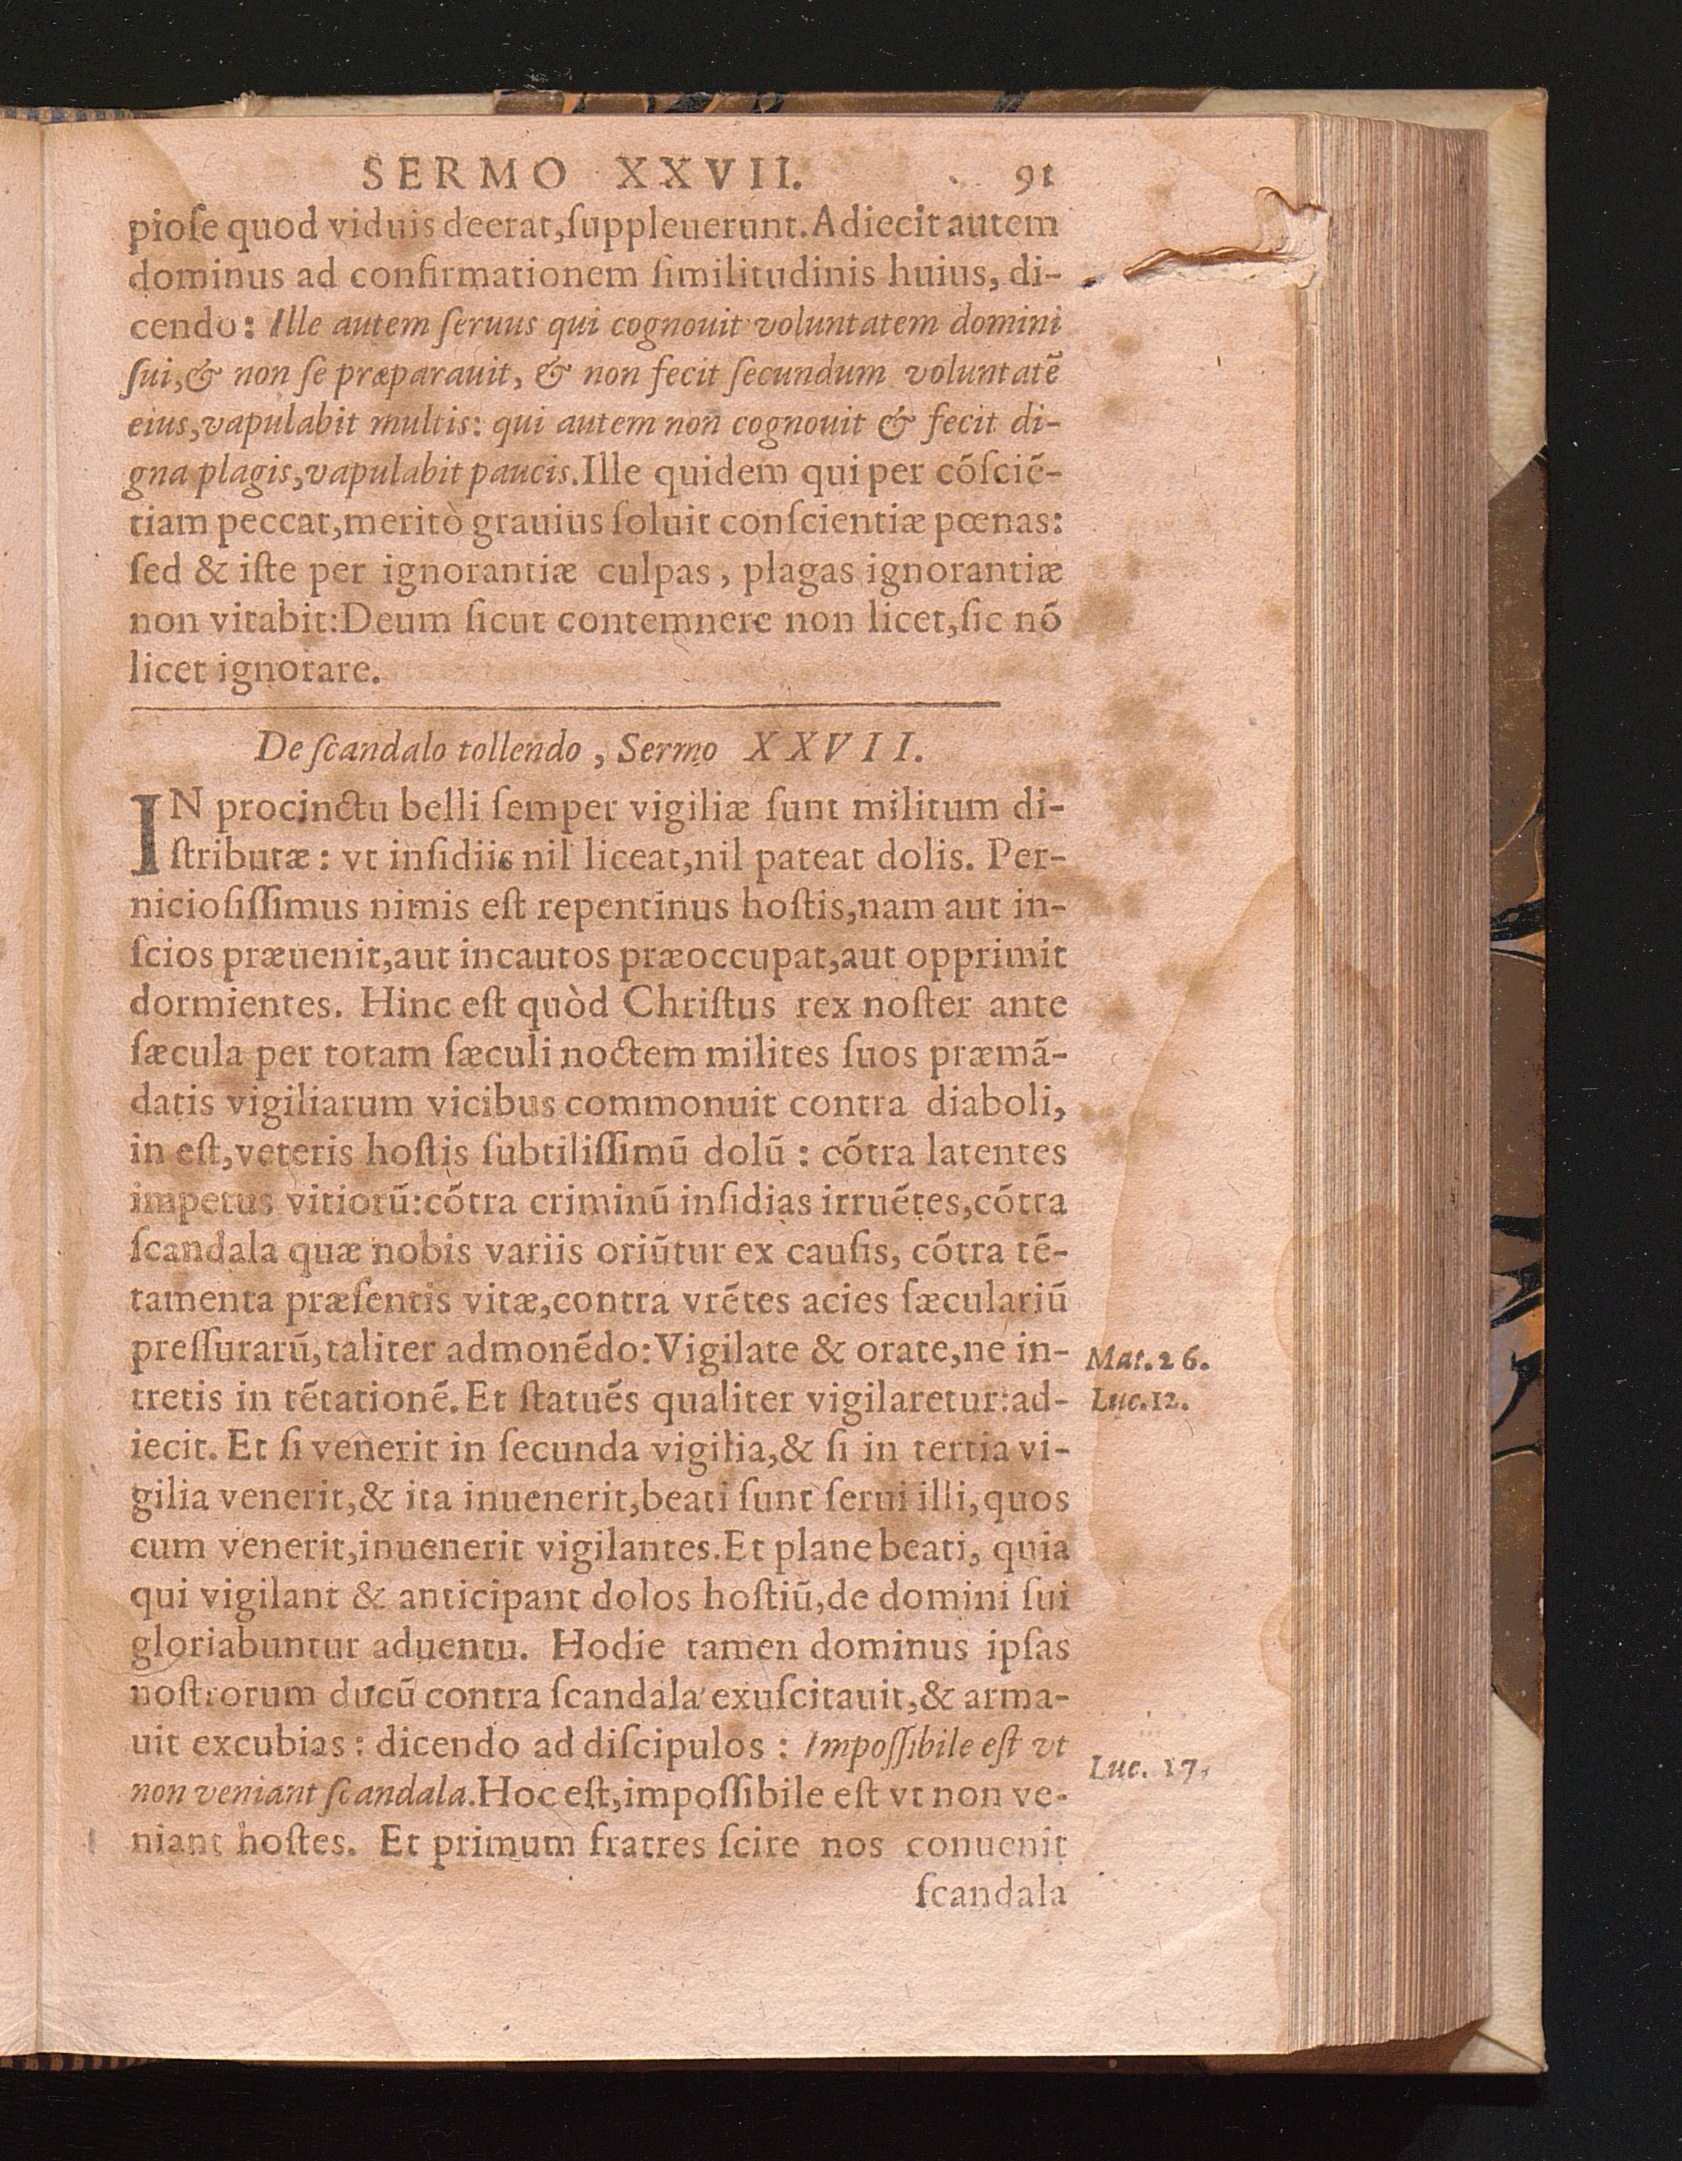 SERMO XXVII. 91
pioſe quod viduis deerat,ſuppleuerunt.Adiecit autem
dominus ad confirmationem ſimilitudinis huius, di-
cendo: Ille autem ſeruus qui cognouit voluntatem domini
ſui,& non ſe præparauit, & non fecit ſecundum voluntatē
eius,vapulabit multis: qui autem non cognouit & fecit di-
gna plagis,vapulabit paucis.Ille quidem qui per cōſciē-
tiam peccat,meritò grauius ſoluit conſcientiæ pœnas:
ſed & iſte per ignorantiæ culpas, plagas ignorantiæ
non vitabit:Deum ſicut contemnere non licet,ſic nō
licet ignorare.
De ſcandalo tollendo, Sermo XXVII.
IN procinctu belli ſemper vigiliæ ſunt militum di-
ſtributæ: vt inſidiis nil liceat,nil pateat dolis. Per-
nicioſiſſimus nimis eſt repentinus hoſtis,nam aut in-
ſcios præuenit,aut incautos præoccupat,aut opprimit
dormientes. Hinc eſt quòd Chriſtus rex noſter ante
ſæcula per totam ſæculi noctem milites ſuos præmā-
datis vigiliarum vicibus commonuit contra diaboli,
in eſt,veteris hoſtis ſubtiliſſimū dolū: cōtra latentes
impetus vitiorū:cōtra criminū inſidias irruētes,cōtra
ſcandala quæ nobis variis oriūtur ex cauſis, cōtra tē-
tamenta præſentis vitæ,contra vrētes acies ſæculariū
preſſurarū,taliter admonēdo:Vigilate & orate,ne in-
tretis in tētationē.Et ſtatuēs qualiter vigilaretur:ad-
iecit. Et ſi venerit in ſecunda vigilia,& ſi in tertia vi-
gilia venerit,& ita inuenerit,beati ſunt ſerui illi,quos
cum venerit,inuenerit vigilantes.Et plane beati, quia
qui vigilant & anticipant dolos hoſtiū,de domini ſui
gloriabuntur aduentu. Hodie tamen dominus ipſas
noſtrorum ducū contra ſcandala exuſcitauit,& arma-
uit excubias: dicendo ad diſcipulos: Impoſſibile eſt vt
non veniant ſcandala.Hoc eſt,impoſſibile eſt vt non ve-
niant hoſtes. Et primum fratres ſcire nos conuenit
ſcandala
Mat.26.
Luc.12.
Luc. 17.